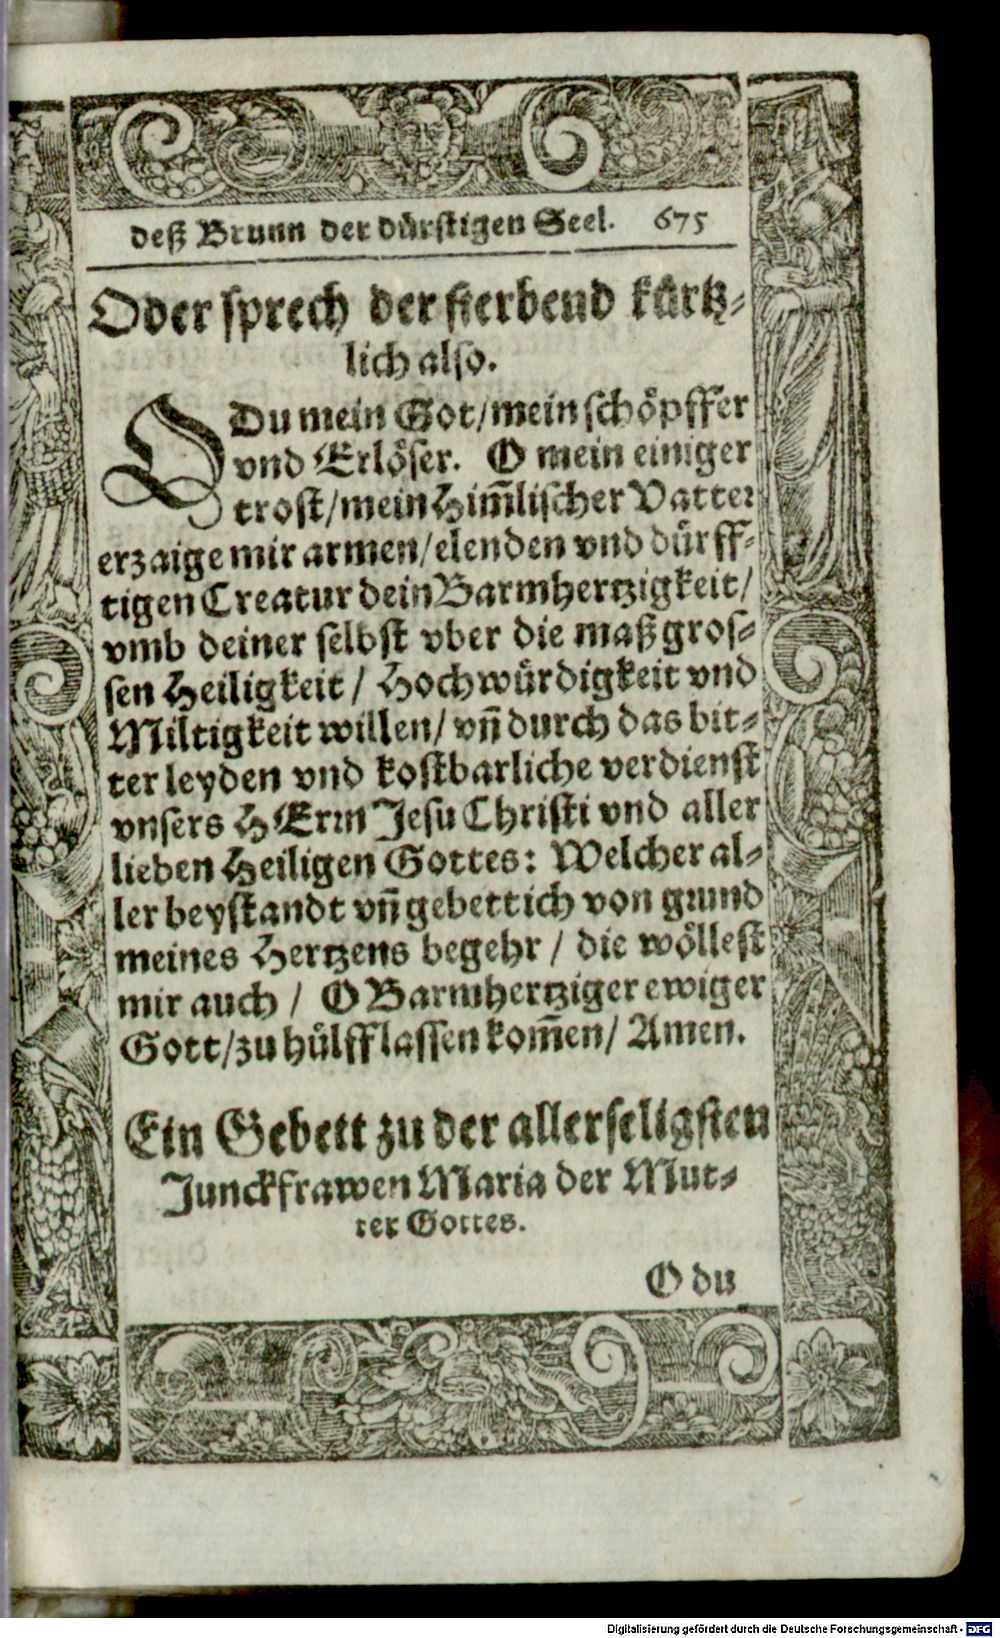 deß Brunn der dürstigen Seel. 675
Oder sprech der sterbend kürtz-
lich also.
O Du mein Got/mein schöpffer
vnd Erlöser. O mein einiger
trost/mein Him̄lischer Vatter
erzaige mir armen/elenden vnd dürff-
tigen Creatur dein Barmhertzigkeit/
vmb deiner selbst vber die maß gros-
sen Heiligkeit / Hochwürdigkeit vnd
Miltigkeit willen/ vn̄ durch das bit-
ter leyden vnd kostbarliche verdienst
vnsers HErrn Jesu Christi vnd aller
lieben Heiligen Gottes: Welcher al-
ler beystandt vn̄ gebett ich von grund
meines Hertzens begehr / die wöllest
mir auch / O Barmhertziger ewiger
Gott/zu hülff lassen kom̄en/ Amen.
Ein Gebett zu der allerseligsten
Junckfrawen Maria der Mut-
ter Gottes.
O du
Digitalisierung gefördert durch die Deutsche Forschungsgemeinschaft - DFG